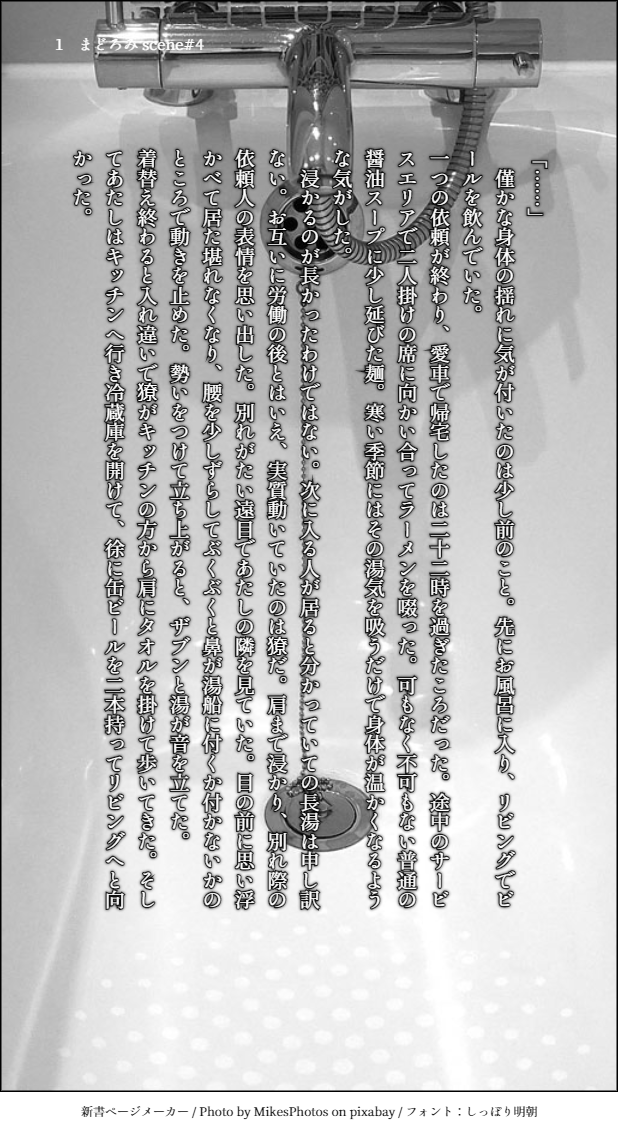 1 まどろみ scene#4
「……」
僅かな身体の揺れに気が付いたのは少し前のこと。先にお風呂に入り、リビングでビ
ールを飲んでいた。
一つの依頼が終わり、愛車で帰宅したのは二十二時を過ぎたころだった。途中のサービ
スエリアで二人掛けの席に向かい合ってラーメンを啜った。可もなく不可もない普通の
醤油スープに少し延びた麺。寒い季節にはその湯気を吸うだけで身体が温かくなるよう
な気がした。
浸かるのが長かったわけではない。次に入る人が居ると分かっていての長湯は申し訳
ない。お互いに労働の後とはいえ、実質動いていたのは獠だ。肩まで浸かり、別れ際の
依頼人の表情を思い出した。別れがたい遠目であたしの隣を見ていた。目の前に思い浮
かべて居た堪れなくなり、腰を少しずらしてぶくぶくと鼻が湯船に付くか付かないかの
ところで動きを止めた。勢いをつけて立ち上がると、ザブンと湯が音を立てた。
着替え終わると入れ違いで獠がキッチンの方から肩にタオルを掛けて歩いてきた。そし
てあたしはキッチンへ行き冷蔵庫を開けて、徐に缶ビールを二本持ってリビングへと向
かった。
新書ページメーカー / Photo by MikesPhotos on pixabay / フォント：しっぽり明朝